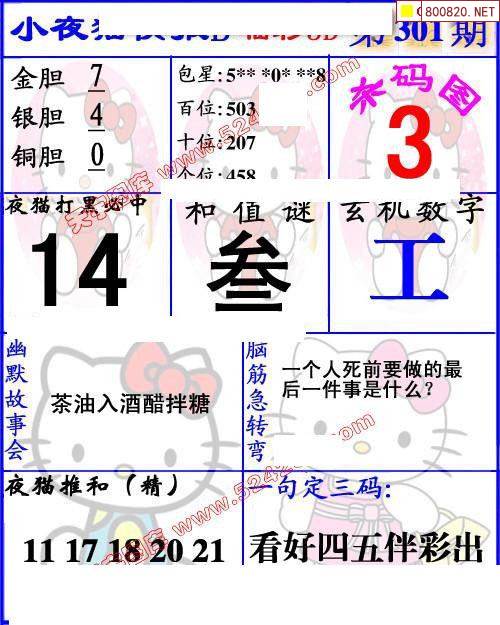 800820.NET
小夜猫
第301期
金胆 7
银胆 4
铜胆 0
包星:5** *0* **8
百位:503
十位:207
个位:458
杀码图
3
夜猫打黑必中
14
和值谜
叁
玄机数字
工
幽默故事会
茶油入酒醋拌糖
脑筋急转弯
一个人死前要做的最
后一件事是什么?
夜猫推和(精)
11 17 18 20 21
一句定三码:
看好四五伴彩出